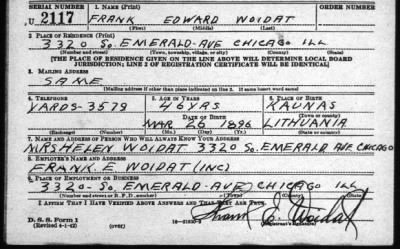 SERIAL NUMBER 1. NAME (Print)
U 2117 FRANK EDWARD WOIDAT
(First) (Middle) (Last)
2. PLACE OF RESIDENCE (Print)
3320 So. EMERALD-AVE CHICAGO ILL
(Number and street) (Town, township, village, or city) (County) (State)
[THE PLACE OF RESIDENCE GIVEN ON THE LINE ABOVE WILL DETERMINE LOCAL BOARD
JURISDICTION; LINE 2 OF REGISTRATION CERTIFICATE WILL BE IDENTICAL]
3. MAILING ADDRESS
SAME
[Mailing address if other than place indicated on line 2. If same insert word same]
4. TELEPHONE 5. AGE IN YEARS 6. PLACE OF BIRTH
46 YRS. KAUNAS
YARDS-3579 DATE OF BIRTH (Town or county)
MAR 26 1896 LITHUANIA
(Exchange) (Number) (Mo.) (Day) (Yr.) (State or country)
7. NAME AND ADDRESS OF PERSON WHO WILL ALWAYS KNOW YOUR ADDRESS
MRS HELEN WOIDAT 3320 So. EMERALD AVE CHICAGO
8. EMPLOYER'S NAME AND ADDRESS
FRANK. E WOIDAT (INC)
9. PLACE OF EMPLOYMENT OR BUSINESS
3320 So. EMERALD-AVE CHICAGO ILL
(Number and street or R. F. D. number) (Town) (County) (State)
I AFFIRM THAT I HAVE VERIFIED ABOVE ANSWERS AND THAT THEY ARE TRUE.
D. S. S. Form 1 Frank E. Woidat
(Revised 4-1-42) (over) (Registrant's signature)